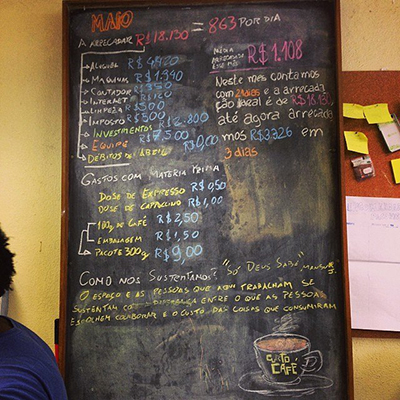 MAIO
A ARRECADAR R$ 18.130 = 863 POR DIA
ALUGUEL R$ 4.420
MÁQUINA R$ 1.390
CONTADOR
INTERNET
LIMPEZA R$ 500
IMPOSTO R$ 500
INVESTIMENTOS R$ 2.800
EQUIPE R$ 7.500
DÉBITOS DE ABRIL R$ 0,00
MÉDIA ARRECADADA ESSE MÊS R$ 1.108
NESTE MÊS CONTAMOS
COM 21 DIAS E A ARRECADA
ÇÃO IDEAL É DE R$ 18.130,
ATÉ AGORA ARRECADA
MOS R$ 3.326 EM
3 DIAS
GASTOS COM MATÉRIA PRIMA
DOSE DE EXPRESSO R$ 0,50
DOSE DE CAPPUCCINO R$ 1,00
100g DE CAFÉ R$ 2,50
EMBALAGEM R$ 1,50
PACOTE 300g R$ 9,00
COMO NOS SUSTENTAMOS? "SÓ DEUS SABE"
O ESPAÇO E AS PESSOAS QUE AQUI TRABALHAM SE
SUSTENTAM DIFERENÇA ENTRE O QUE AS PESSOAS
ESCOLHEM COLABORAR E O CUSTO DAS COISAS QUE CONSUMIRAM
CAFÉ